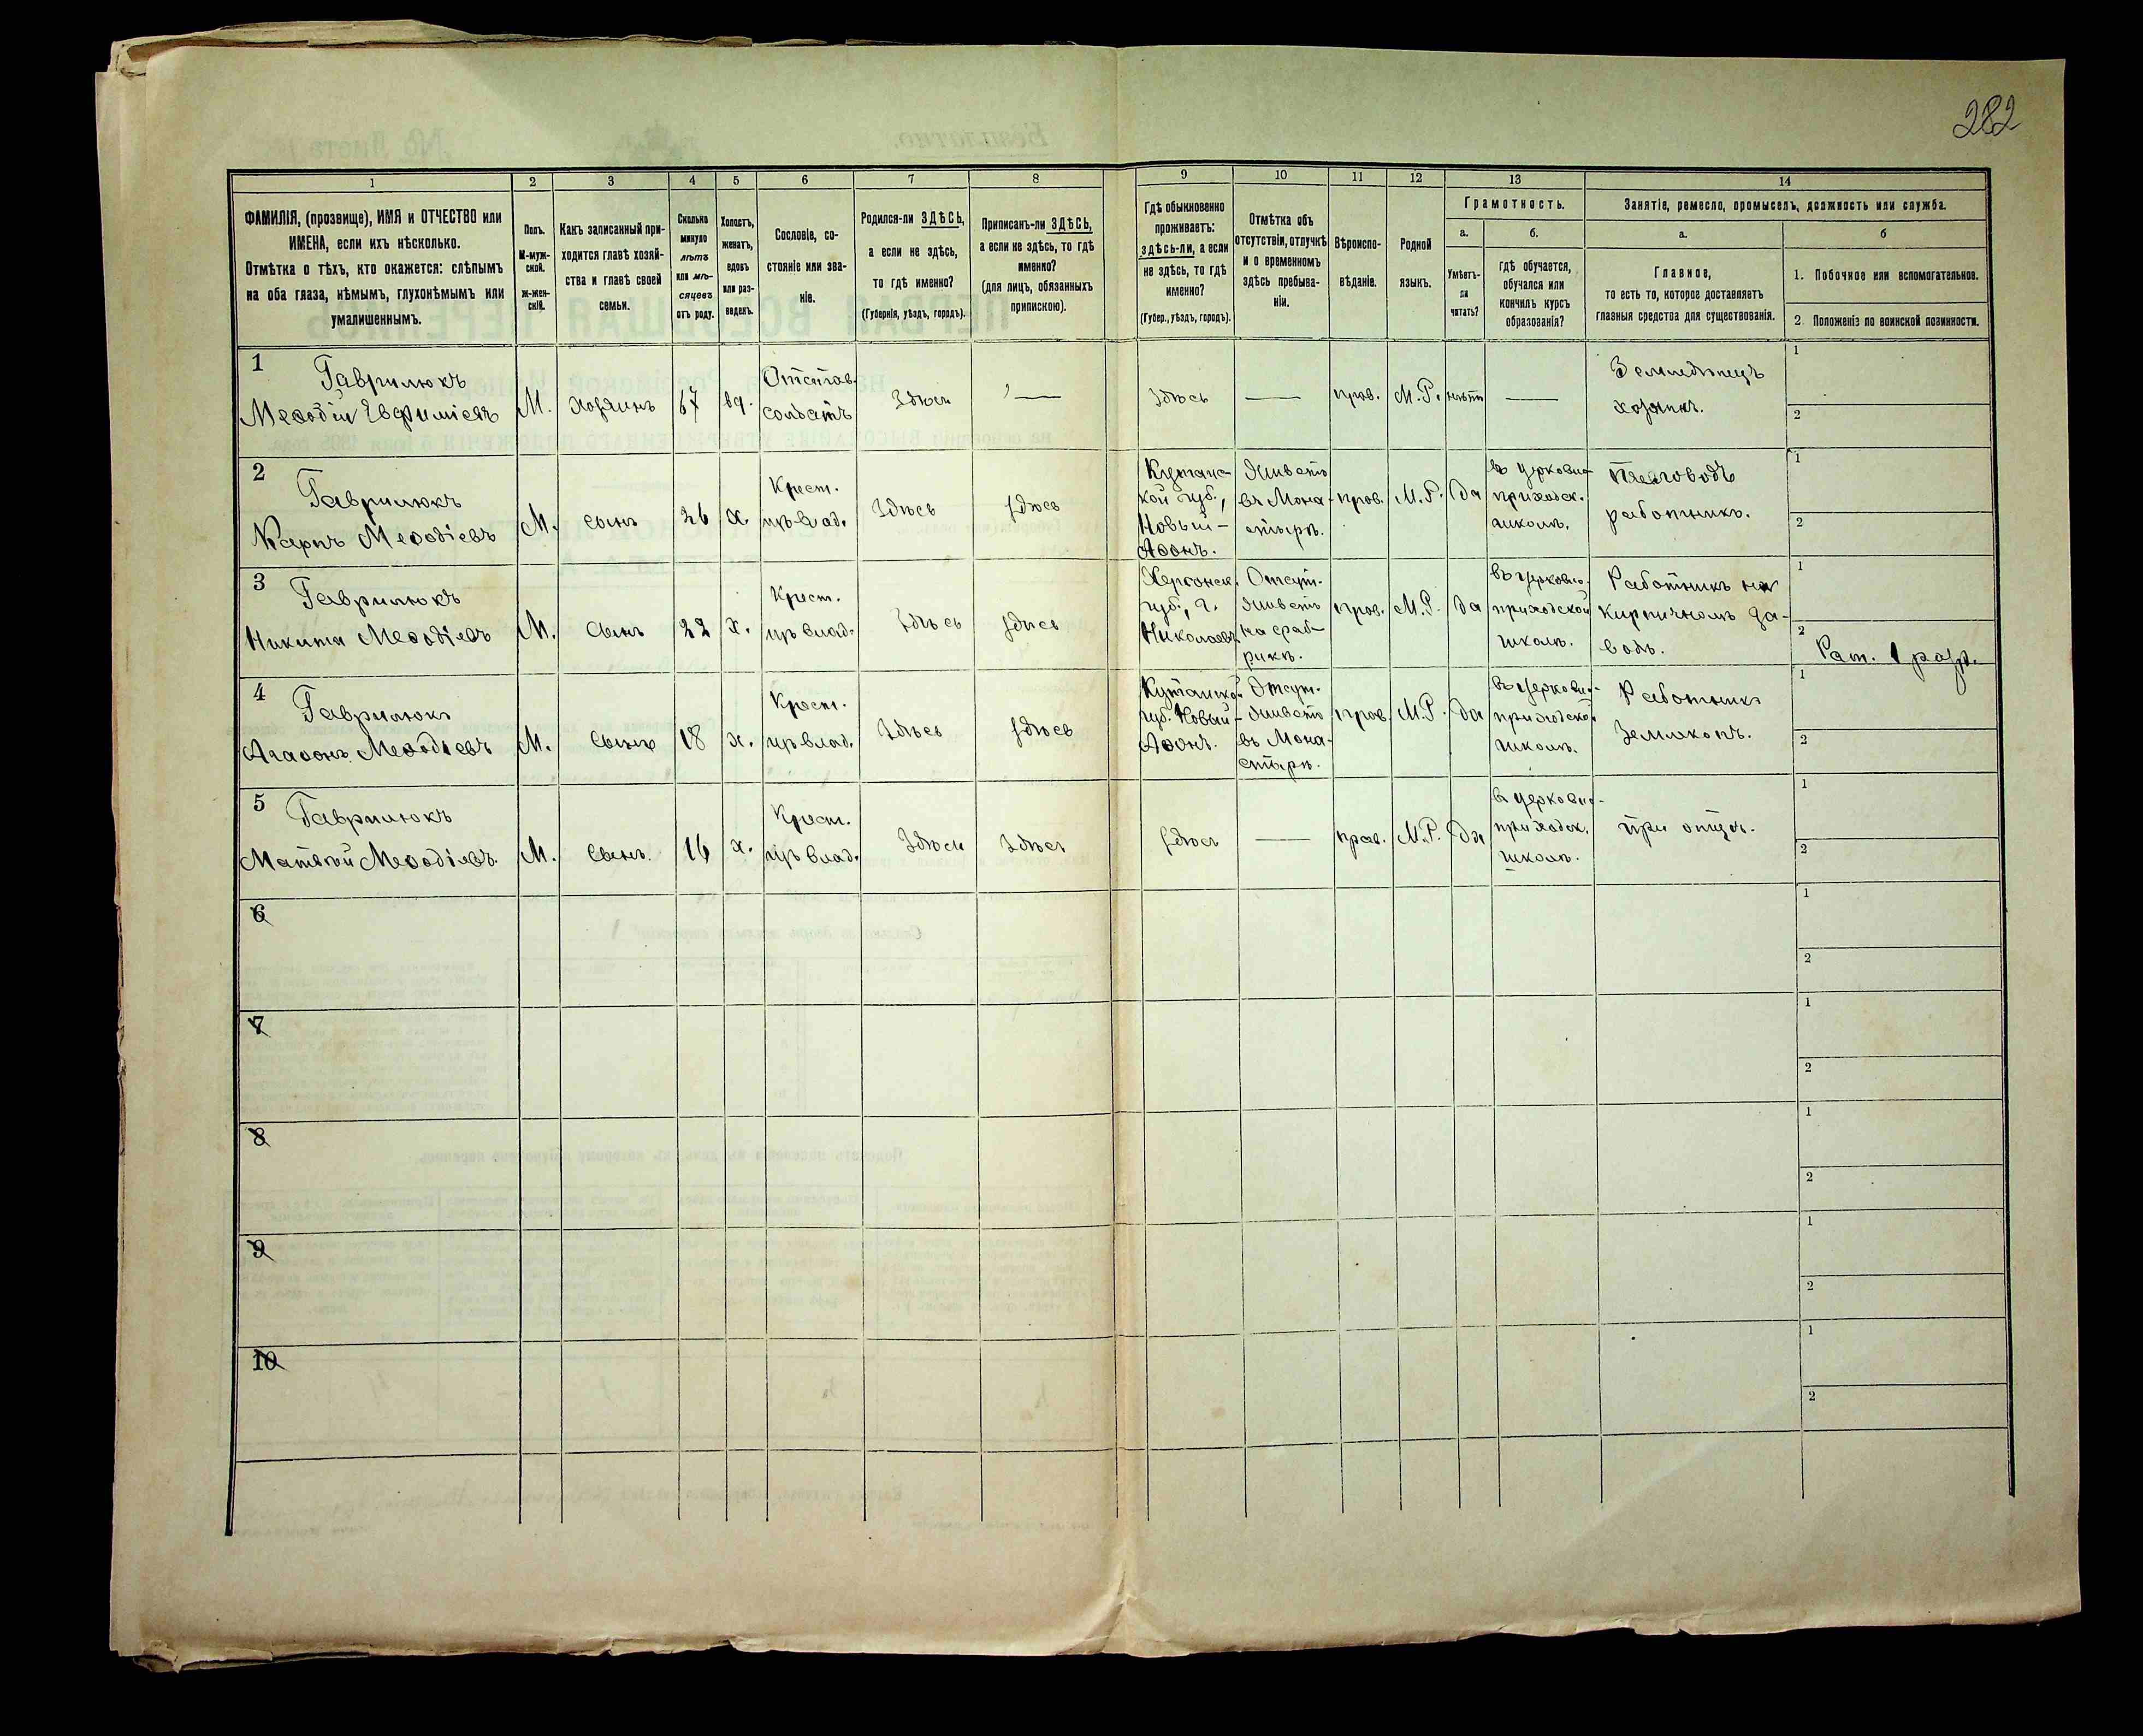 282
1 2 3 4 5 6 7 8 9 10 11 12 13 14
ФАМИЛІЯ, (прозвище), ИМЯ и ОТЧЕСТВО или
ИМЕНА, если ихъ нѣсколько.
Отмѣтка о тѣхъ, кто окажется: слѣпымъ
на оба глаза, нѣмымъ, глухонѣмымъ или
умалишеннымъ.
Полъ.
М-муж-
ской.
ж-жен-
скій.
Какъ записанный при-
ходится главѣ хозяй-
ства и главѣ своей
семьи.
Сколько
минуло
лѣтъ
или мѣ-
сяцевъ
отъ роду.
Холостъ,
женатъ,
вдовъ
или раз-
веденъ.
Сословіе, со-
стояніе или зва-
ніе.
Родился-ли ЗДѢСЬ,
а если не здѣсь,
то гдѣ именно?
(Губернія, уѣздъ, городъ).
Приписанъ-ли ЗДѢСЬ,
а если не здѣсь, то гдѣ
именно?
(для лицъ, обязанныхъ
припискою).
Гдѣ обыкновенно
проживаетъ:
здѣсь-ли, а если
не здѣсь, то гдѣ
именно?
(Губер., уѣздъ, городъ).
Отмѣтка объ
отсутствіи, отлучкѣ
и о временномъ
здѣсь пребыва-
ніи.
Вѣроиспо-
вѣданіе.
Родной
языкъ.
Грамотность.
а.
Умѣетъ-
ли
читать?
б.
гдѣ обучается,
обучался или
кончилъ курсъ
образованія?
Занятіе, ремесло, промыселъ, должность или служба.
а.
Главное,
то есть то, которое доставляетъ
главныя средства для существованія.
б
1. Побочное или вспомогательное.
2. Положеніе по воинской повинности.
1
Гаврилюкъ
Меѳодій Евфиміевъ
М.
хозяинъ
67
вд.
Отстав.
солдатъ
Здѣсь
—
здѣсь
—
прав.
М.Р.
нѣтъ
—
Земледѣлецъ
хозяинъ.
1
2
2
Гаврилюкъ
Карпъ Меѳодіевъ
М.
сынъ
26
х.
Крест.
пр. влад.
Здѣсь
здѣсь
Кутаис-
кой губ.,
Новый-
Аѳонъ.
Живетъ
въ Мона-
стырѣ.
прав.
М.Р.
да
въ церковно-
приходск.
школѣ.
Пчеловодъ
работникъ.
1
2
3
Гаврилюкъ
Никита Меѳодіевъ
М.
Сынъ
22
х.
Крест.
пр. влад.
Здѣсь
здѣсь
Херсонск.
губ., г.
Николаевъ
Отсут.
живетъ
на фаб-
рикѣ.
прав.
М.Р.
да
въ церковно-
приходской
школѣ.
Работникъ на
кирпичномъ за-
водѣ.
1
2
Рат. 1 разр.
4
Гаврилюкъ
Агаѳонъ Меѳодіевъ
М.
Сынъ
18
х.
Крест.
пр. влад.
Здѣсь
здѣсь
губ. Новый-
Аѳонъ.
Отсут.
живетъ
въ Мона-
стырѣ.
прав.
М.Р.
да
въ церковно-
приходской
школѣ.
Работникъ
землекопъ.
1
2
5
Гаврилюкъ
Матвѣй Меѳодіевъ.
М.
Сынъ.
16
х.
Крест.
пр. влад.
Здѣсь
Здѣсь
здѣсь
—
прав.
М.Р.
да
въ церковно-
приходск.
школѣ.
при отцѣ.
1
2
6
1
2
7
1
2
8
1
2
9
1
2
10
1
2